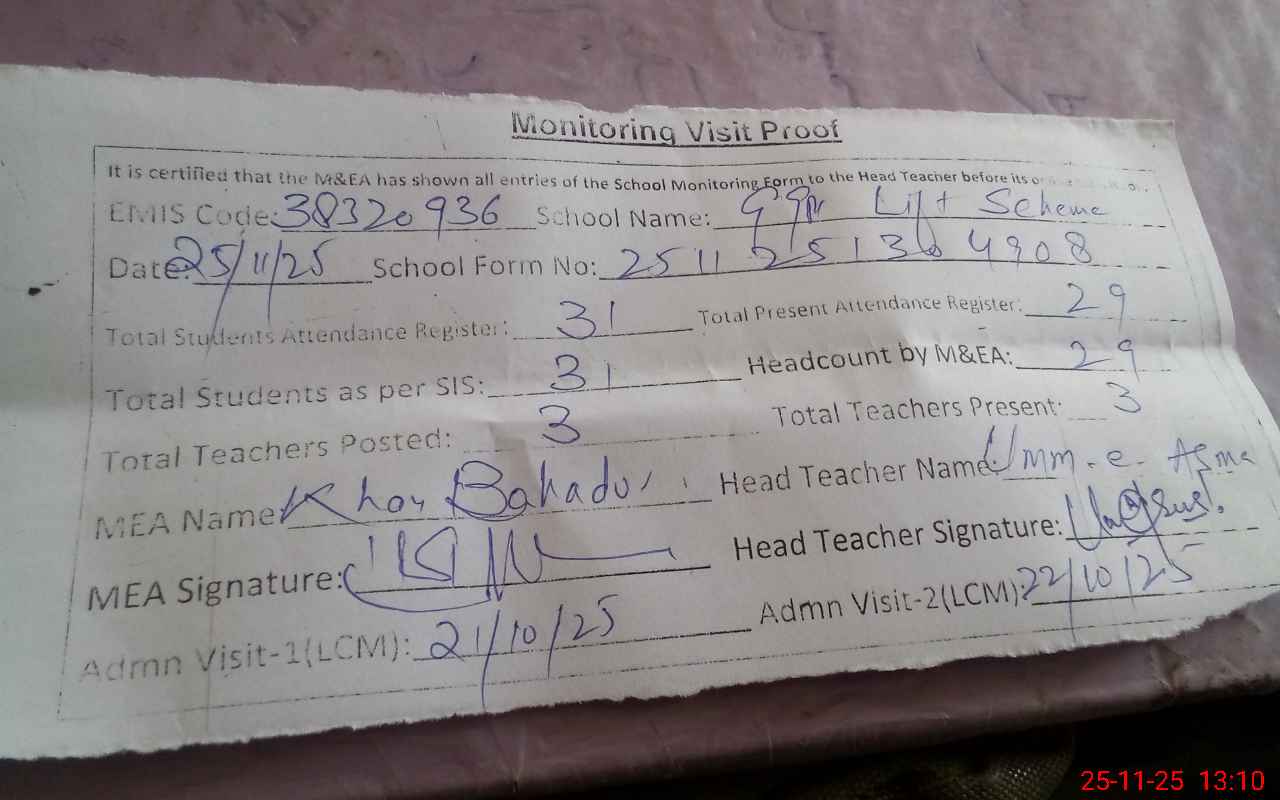 Monitoring Visit Proof
It is certified that the M&EA has shown all entries of the School Monitoring Form to the Head Teacher before its
EMIS Code: 38320936 School Name: Lift Scheme
Date: 25/11/25 School Form No: 2511251364908
Total Students Attendance Register: 31 Total Present Attendance Register: 29
Total Students as per SIS: 31 Headcount by M&EA: 29
Total Teachers Posted: 3 Total Teachers Present: 3
MEA Name: Khan Bahadur Head Teacher Name: Umm-e-Asma
MEA Signature: Head Teacher Signature:
Admn Visit-1(LCM): 21/10/25 Admn Visit-2(LCM): 22/10/25
25-11-25 13:10